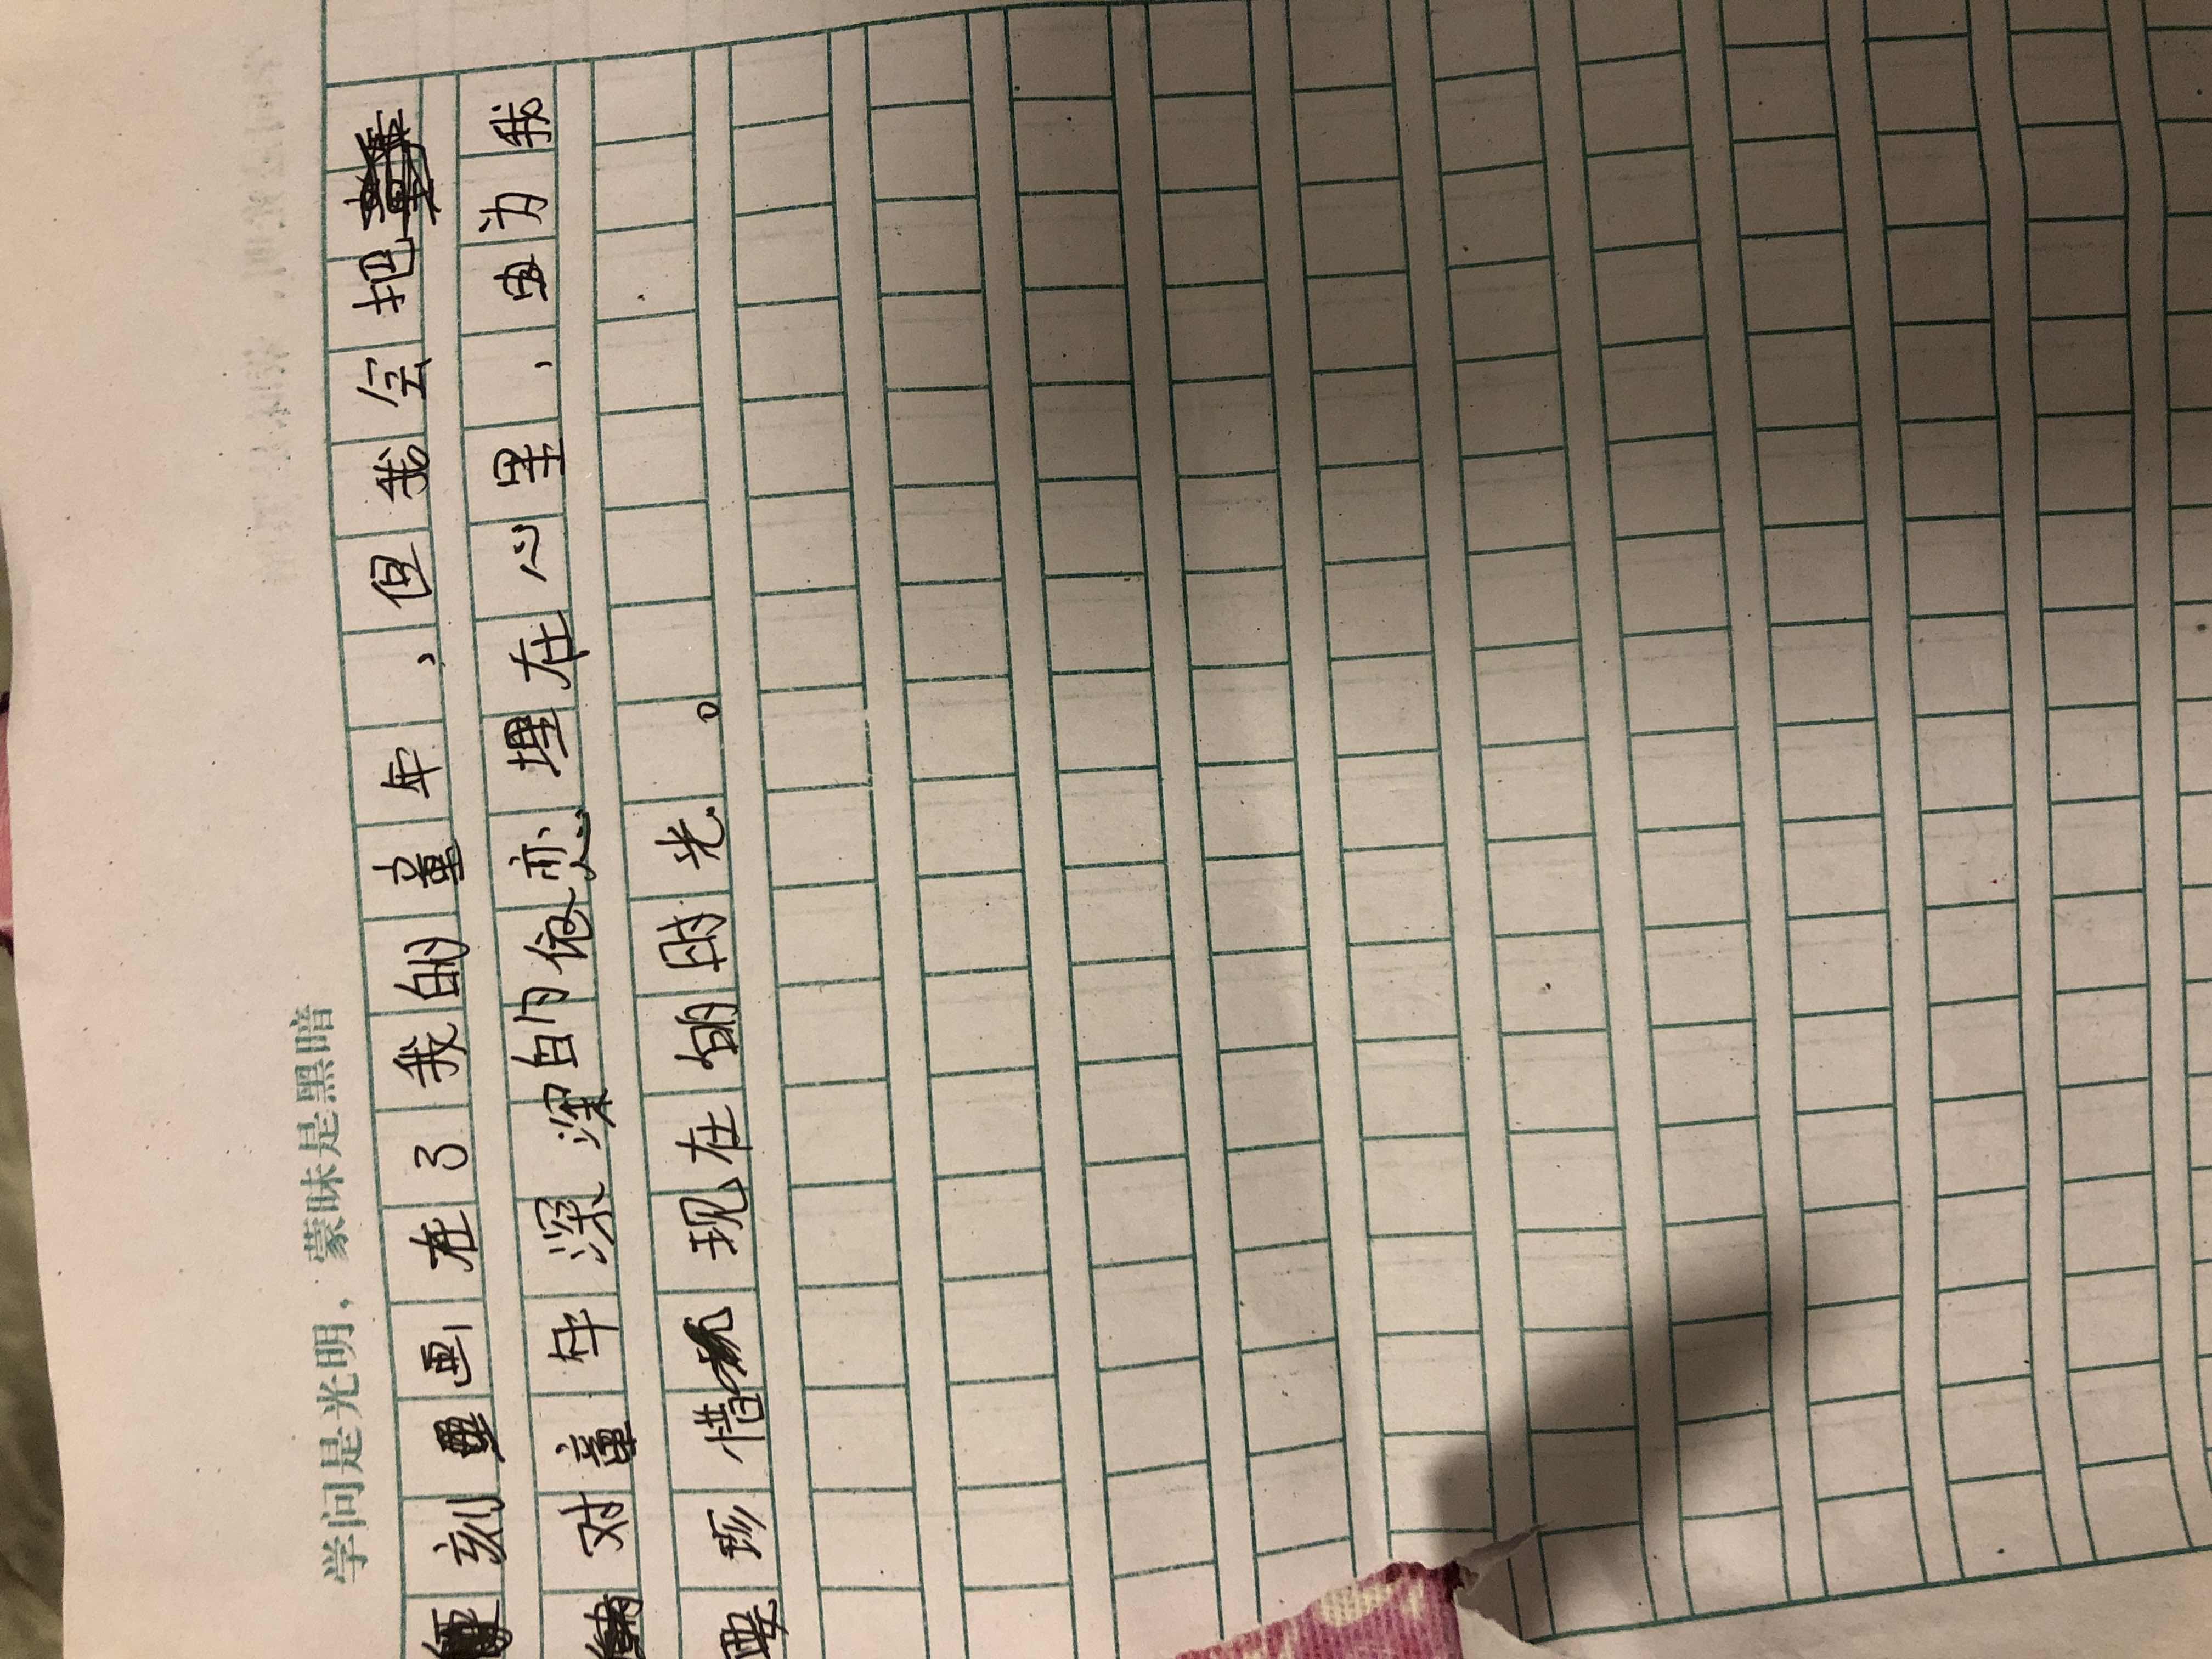 学问是光明，蒙昧是黑暗
刻画在了我的童年，但我会把
对童年深深的依恋埋在心里，因为我
要珍惜现在的时光。